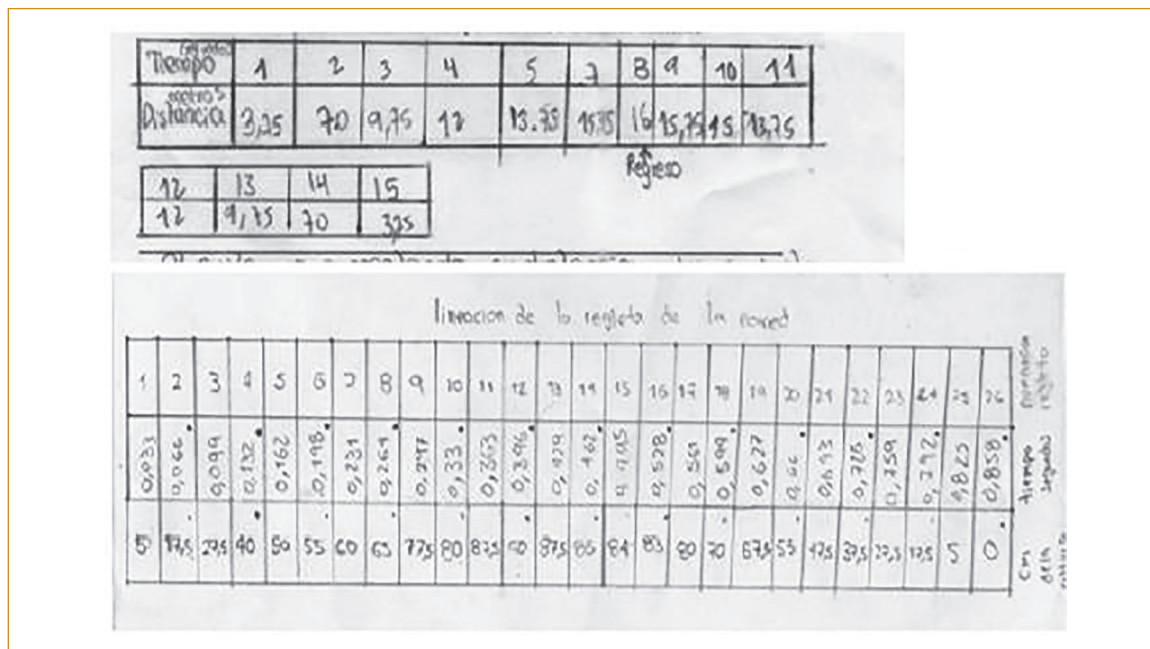 Tiempo segundos 1 2 3 4 5 7 8 9 10 11
Distancia metros 3,75 70 9,75 12 13.75 15,75 16 15,75 15 13,75
Regreso
12 13 14 15
12 9,75 70 3,75
de la regleta de la pared
1 2 3 4 5 6 7 8 9 10 11 12 13 14 15 16 17 18 19 20 21 22 23 24 25 26
0,033 0,066 0,099 0,132 0,162 0,198 0,231 0,264 0,297 0,33 0,363 0,396 0,429 0,462 0,495 0,528 0,561 0,594 0,627 0,66 0,693 0,726 0,759 0,792 0,825 0,858 tiempo segundos
5 17,5 27,5 40 50 55 60 65 77,5 80 87,5 90 87,5 86 84 83 80 70 67,5 55 47,5 37,5 27,5 17,5 5 0 Cm de la